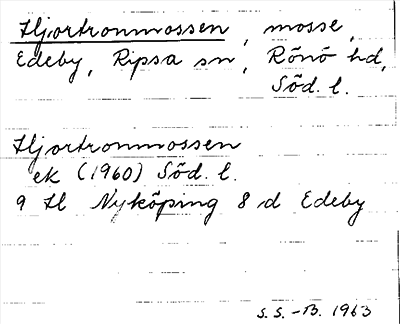 Hjortronmossen, mosse,
Edeby, Ripsa sn, Rönö hd,
Söd. l.
Hjortronmossen
ek (1960) Söd. l.
9 H Nyköping 8 d Edeby
S.S.-B. 1963